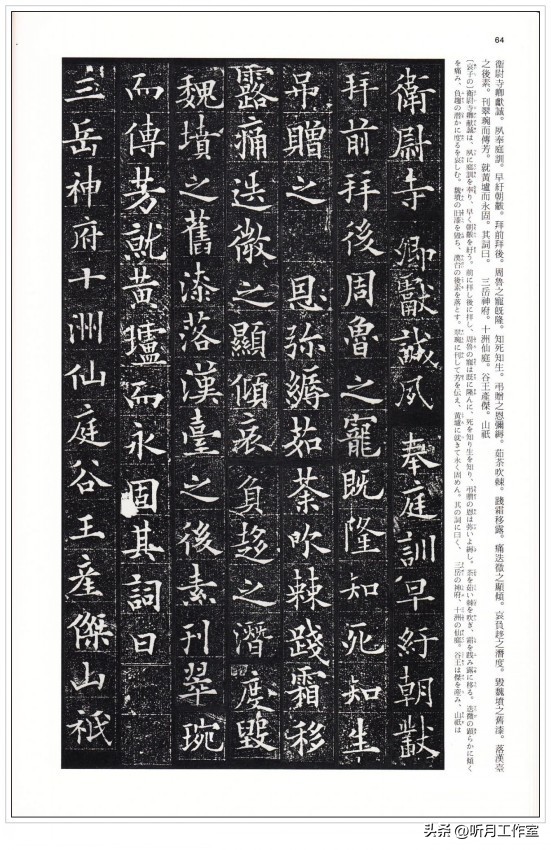 64
衞尉寺卿獻誠。夙奉庭訓。早紆朝黻。拜前拜後。周魯之寵旣隆。知死知生。弔贈之恩彌縟。茹荼吹棘。踐霜移露。痛迭微之顯傾。哀負趍之潛度。毀魏墳之舊漆。落漢臺
之後素。刊翠琬而傳芳。就黃壚而永固。其詞曰。　三岳神府。十洲仙庭。谷王產傑。山祇
（哀子の）衞尉寺卿獻誠は、夙に庭訓を奉り、早く朝黻を紆う。前に拜し後に拜し、周魯の寵は既に隆んに、死を知り生を知り、弔贈の恩は弥いよ縟し。荼を茹い棘を吹き、霜を践み露に移る。迭微の顕らかに傾く
を痛み、負趍の潜かに度るを哀しむ。魏墳の旧漆を毀ち、漢台の後素を落とす。翠琬に刊して芳を伝え、黄壚に就きて永く固めん。其の詞に曰く、　三岳の神府、十洲の仙庭。谷王は傑を産み、山祇は
衛尉寺卿獻誠夙奉庭訓早紆朝黻
拜前拜後周魯之寵既隆知死知生
吊贈之恩弥縟茹荼吹棘踐霜移
露痛迭微之顯傾哀負趍之潛度毀
魏墳之舊漆落漢臺之後素刊翠琬
而傳芳就黄壚而永固其詞曰
三岳神府十洲仙庭谷王產傑山祇
头条 @听月工作室